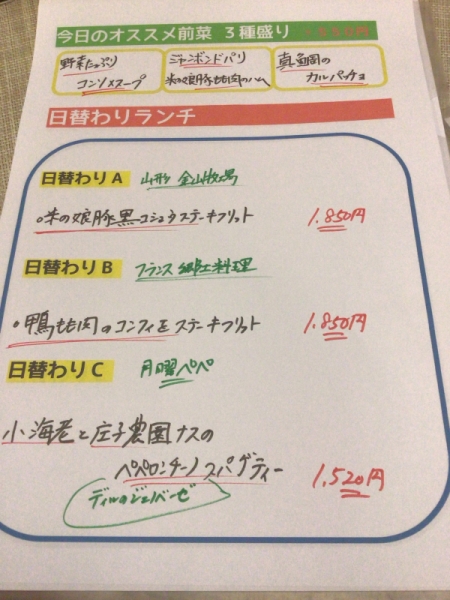 今日のオススメ前菜 3種盛り
野菜たっぷり
コンソメスープ
ジャンボンドパリ
米の娘豚もも肉のハム
真鯛の
カルパッチョ
日替わりランチ
日替わり A 山形 金山牧場
・米の娘豚黒コショウステーキフリット 1.850円
日替わり B フランス郷土料理
・鴨もも肉のコンフィとステーキフリット 1.850円
日替わり C 月曜ペペ
小海老と庄子農園ナスの
ペペロンチーノスパゲティー 1.520円
ディルのジェノベーゼ